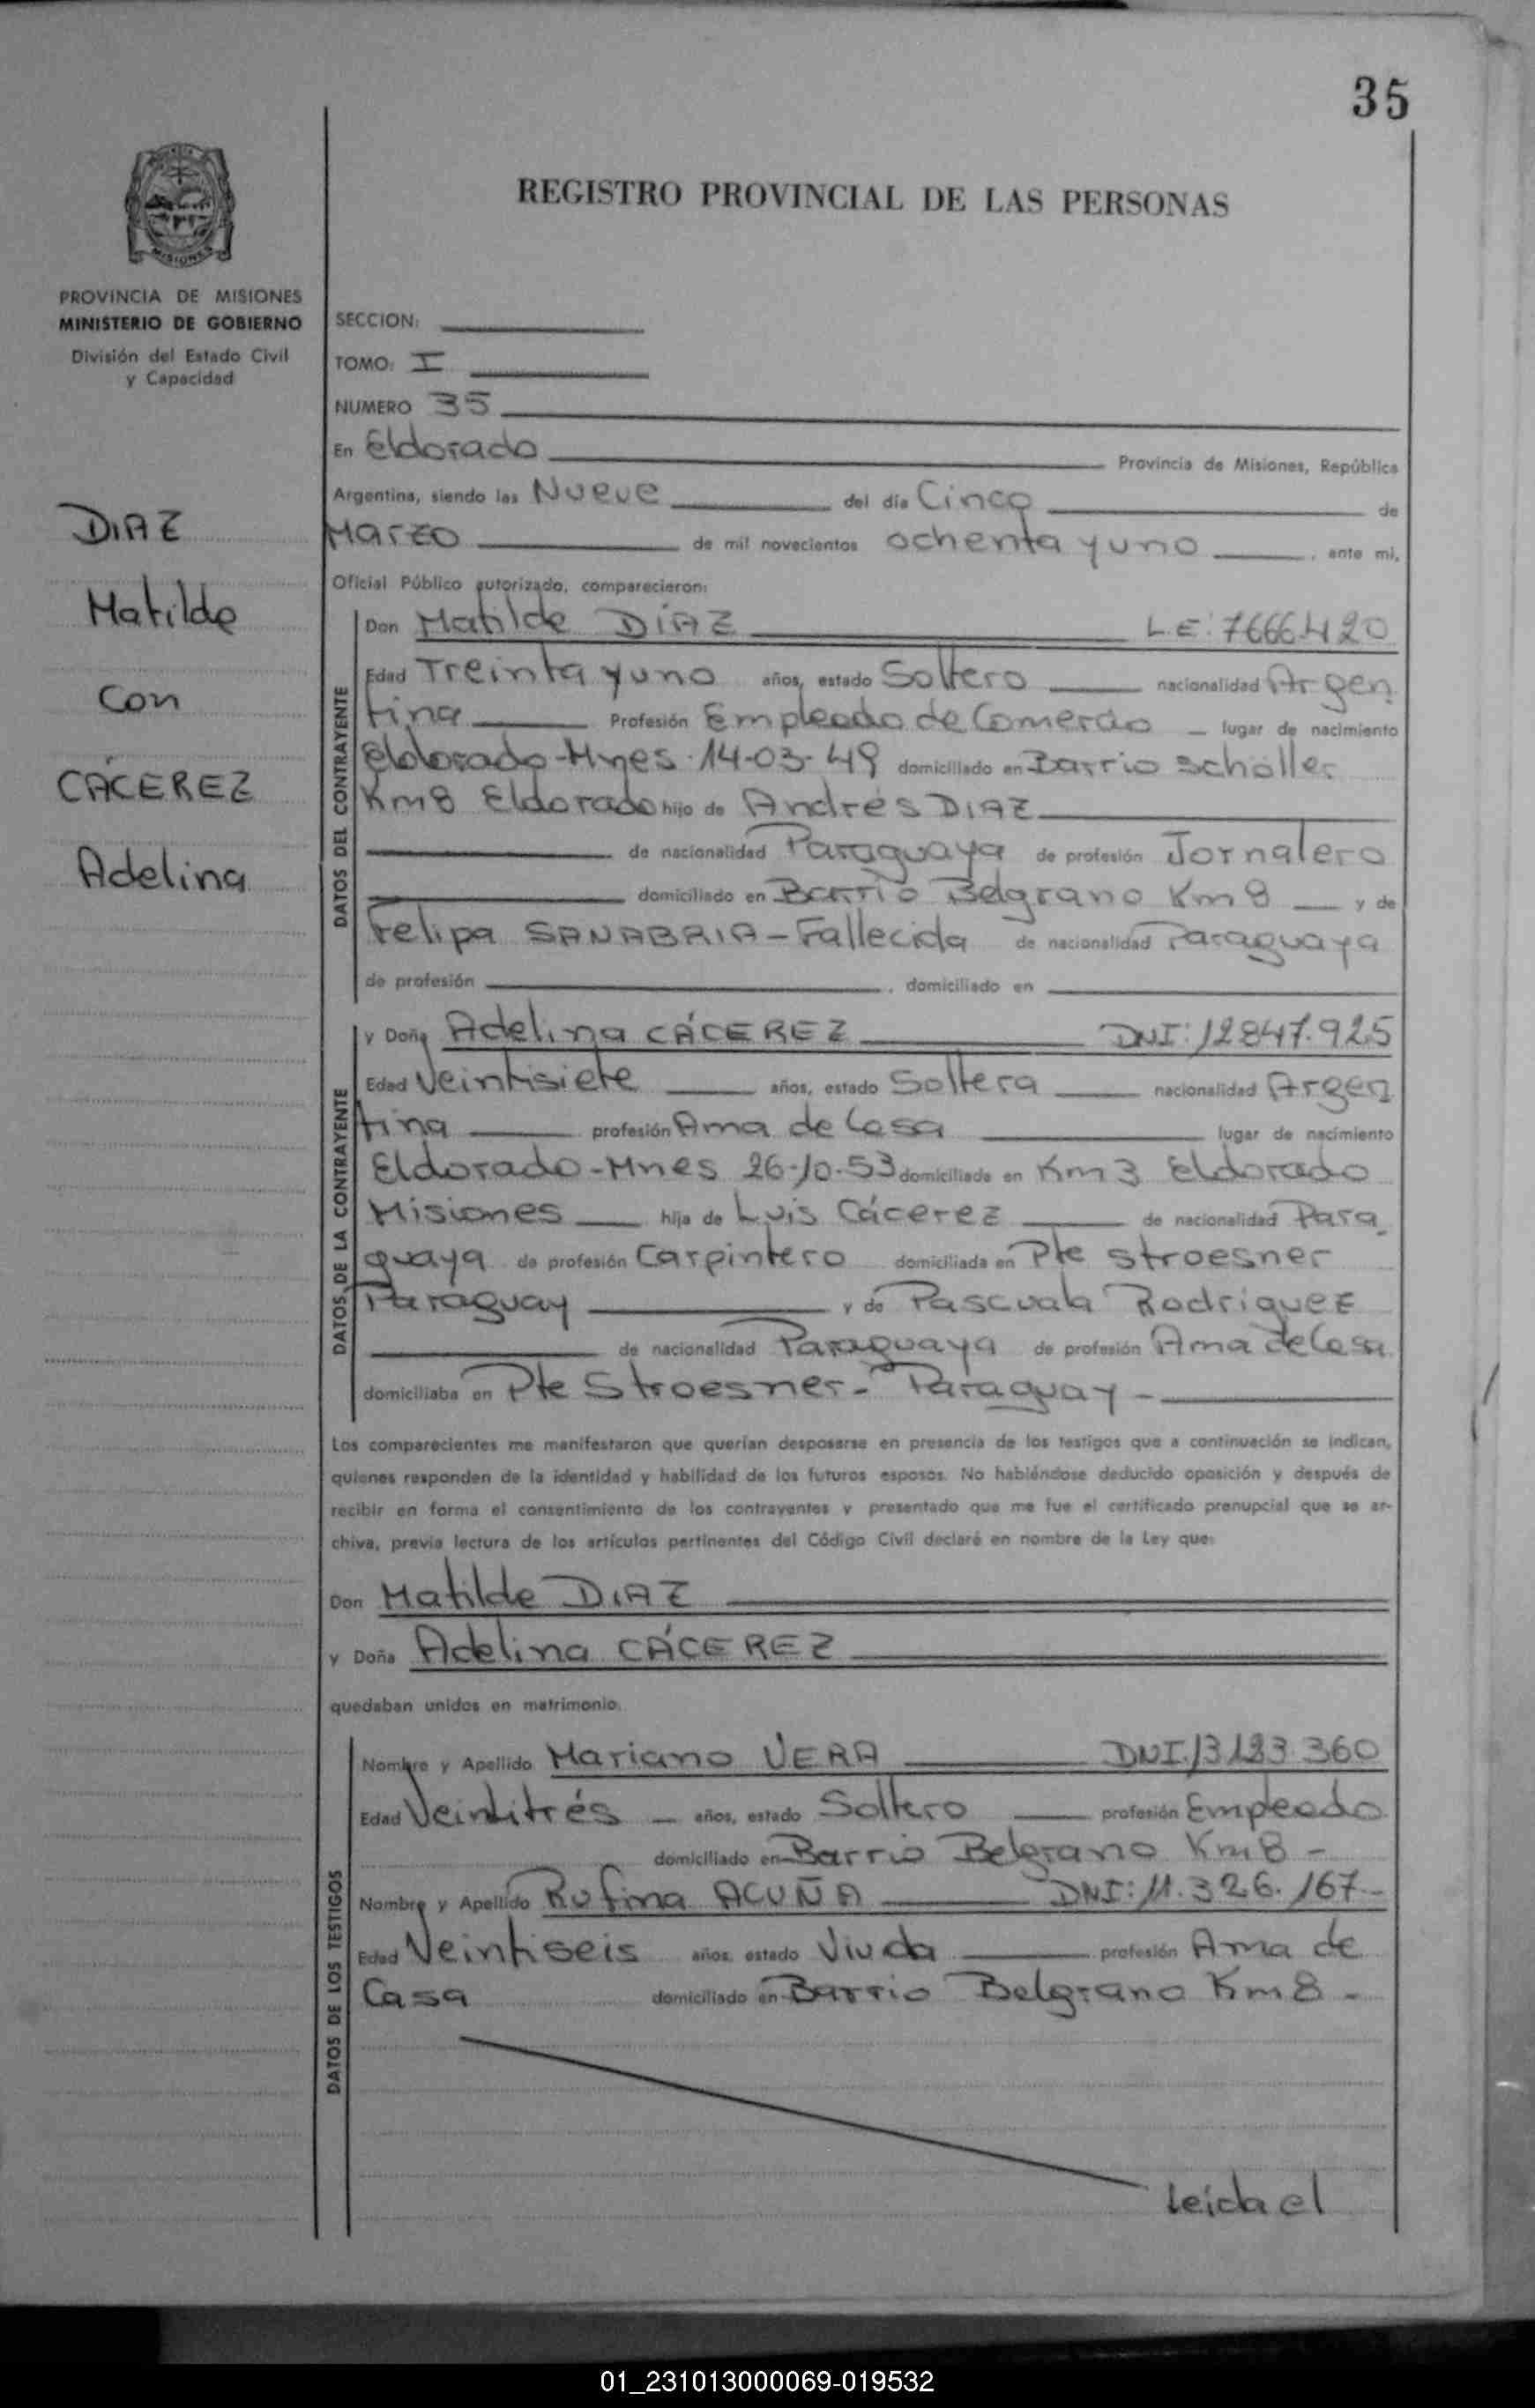 35
REGISTRO PROVINCIAL DE LAS PERSONAS
MISIONES
PROVINCIA DE MISIONES
MINISTERIO DE GOBIERNO
División del Estado Civil
y Capacidad
DIAZ
Matilde
Con
CÁCEREZ
Adelina
SECCION:
TOMO: I
NUMERO 35
En Eldorado Provincia de Misiones, República
Argentina, siendo las Nueve del día Cinco de
Marzo de mil novecientos ochenta y uno, ante mi,
Oficial Público autorizado, comparecieron:
DATOS DEL CONTRAYENTE
Don Matilde DÍAZ L.E: 7666.420
Edad Treinta y uno años, estado Soltero nacionalidad Argen
tina Profesión Empleado de Comercio lugar de nacimiento
Eldorado-Mnes. 14-03-49 domiciliado en Barrio Scholler
Km8 Eldorado hijo de Andrés DIAZ
de nacionalidad Paraguaya de profesión Jornalero
domiciliado en Barrio Belgrano Km 8 y de
Felipa SANABRIA - Fallecida de nacionalidad Paraguaya
de profesión , domiciliado en
DATOS DE LA CONTRAYENTE
y Doña Adelina CÁCEREZ DNI: 12847.925
Edad Veintisiete años, estado Soltera nacionalidad Argen
tina profesión Ama de Casa lugar de nacimiento
Eldorado-Mnes 26-10-53 domiciliada en Km 3 Eldorado
Misiones hija de Luis Cácerez de nacionalidad Para
guaya de profesión Carpintero domiciliada en Pte Stroesner
Paraguay y de Pascuala Rodriguez
de nacionalidad Paraguaya de profesión Ama de Casa
domiciliaba en Pte Stroesner - Paraguay -
Los comparecientes me manifestaron que querían desposarse en presencia de los testigos que a continuación se indican,
quienes responden de la identidad y habilidad de los futuros esposos. No habiéndose deducido oposición y después de
recibir en forma el consentimiento de los contrayentes y presentado que me fue el certificado prenupcial que se ar-
chiva, previa lectura de los artículos pertinentes del Código Civil declaré en nombre de la Ley que:
Don Matilde DIAZ
y Doña Adelina CÁCEREZ
quedaban unidos en matrimonio.
DATOS DE LOS TESTIGOS
Nombre y Apellido Mariano VERA DNI. 13.183.360
Edad Veintitrés años, estado Soltero profesión Empleado
domiciliado en Barrio Belgrano Km 8 -
Nombre y Apellido Rufina ACUÑA DNI: 11.326.167-
Edad Veintiseis años, estado Viuda profesión Ama de
Casa domiciliado en Barrio Belgrano Km 8 -
Leída el
01_231013000069-019532